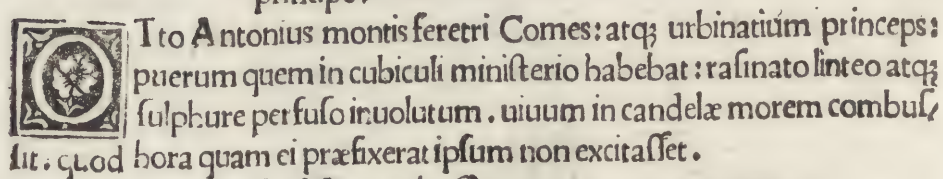 OTto Antonius montis feretri Comes: atqȝ urbinatium princeps:
puerum quem in cubiculi miniſterio habebat: raſinato linteo atqȝ
ſulphure perfuſo inuolutum. uiuum in candelæ morem combuſ/
ſit. quod hora quam ei præfixerat ipſum non excitaſſet.